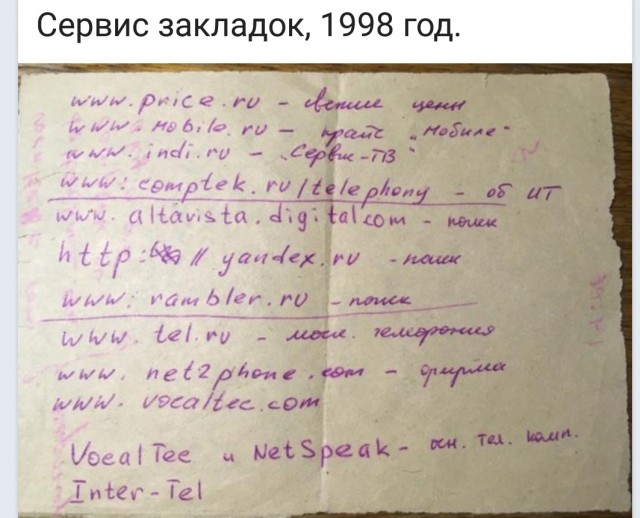 Сервис закладок, 1998 год.
www.price.ru - свежие цены
www.mobile.ru - прайс "Мобиле"
www.indi.ru - "Сервис-ПЗ"
www.comptek.ru/telephony - об ИТ
www.altavista.digital.com - поиск
http:// yandex.ru - поиск
www.rambler.ru - поиск
www.tel.ru - моск. телефония
www.net2phone.com - фирма
www.vocaltec.com
VocalTec и NetSpeak - осн. тел. комп.
Inter-Tel